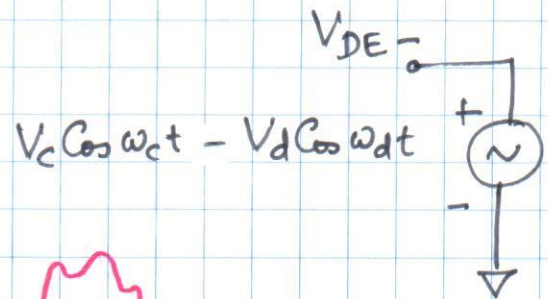 V_DE-
V_c Cos ω_c t - V_d Cos ω_d t
+
~
-